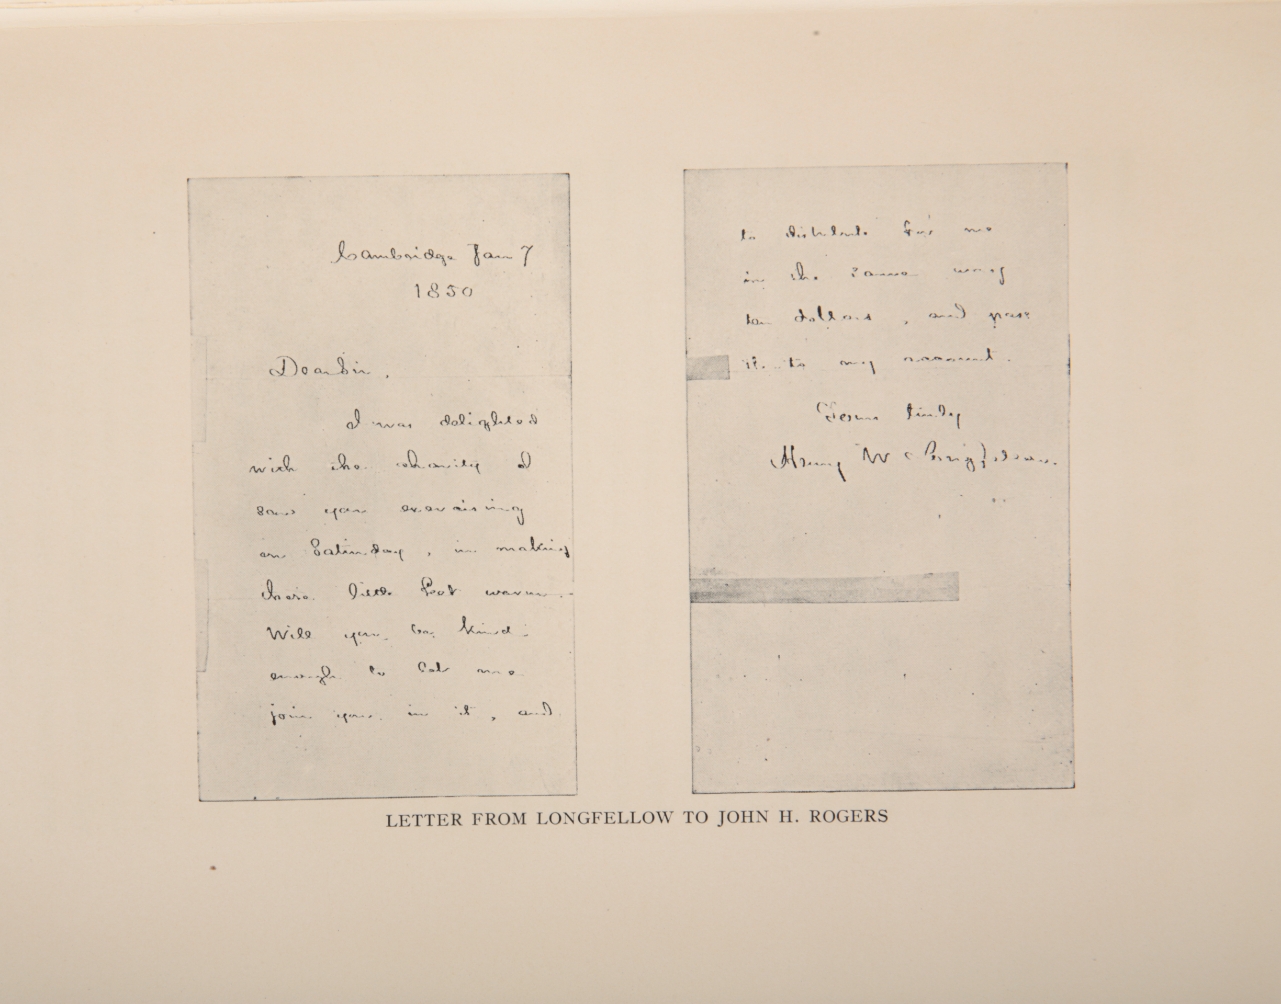 Cambridge Jan 7
1850
Dear Sir,
I was delighted
with the charity I
saw you exercising
on Saturday, in making
those little feet warm.
Will you be kind
enough to let me
join you in it, and
to distribute for me
in the same way
ten dollars, and pass
it to my account.
Yours truly
Henry W. Longfellow.
LETTER FROM LONGFELLOW TO JOHN H. ROGERS